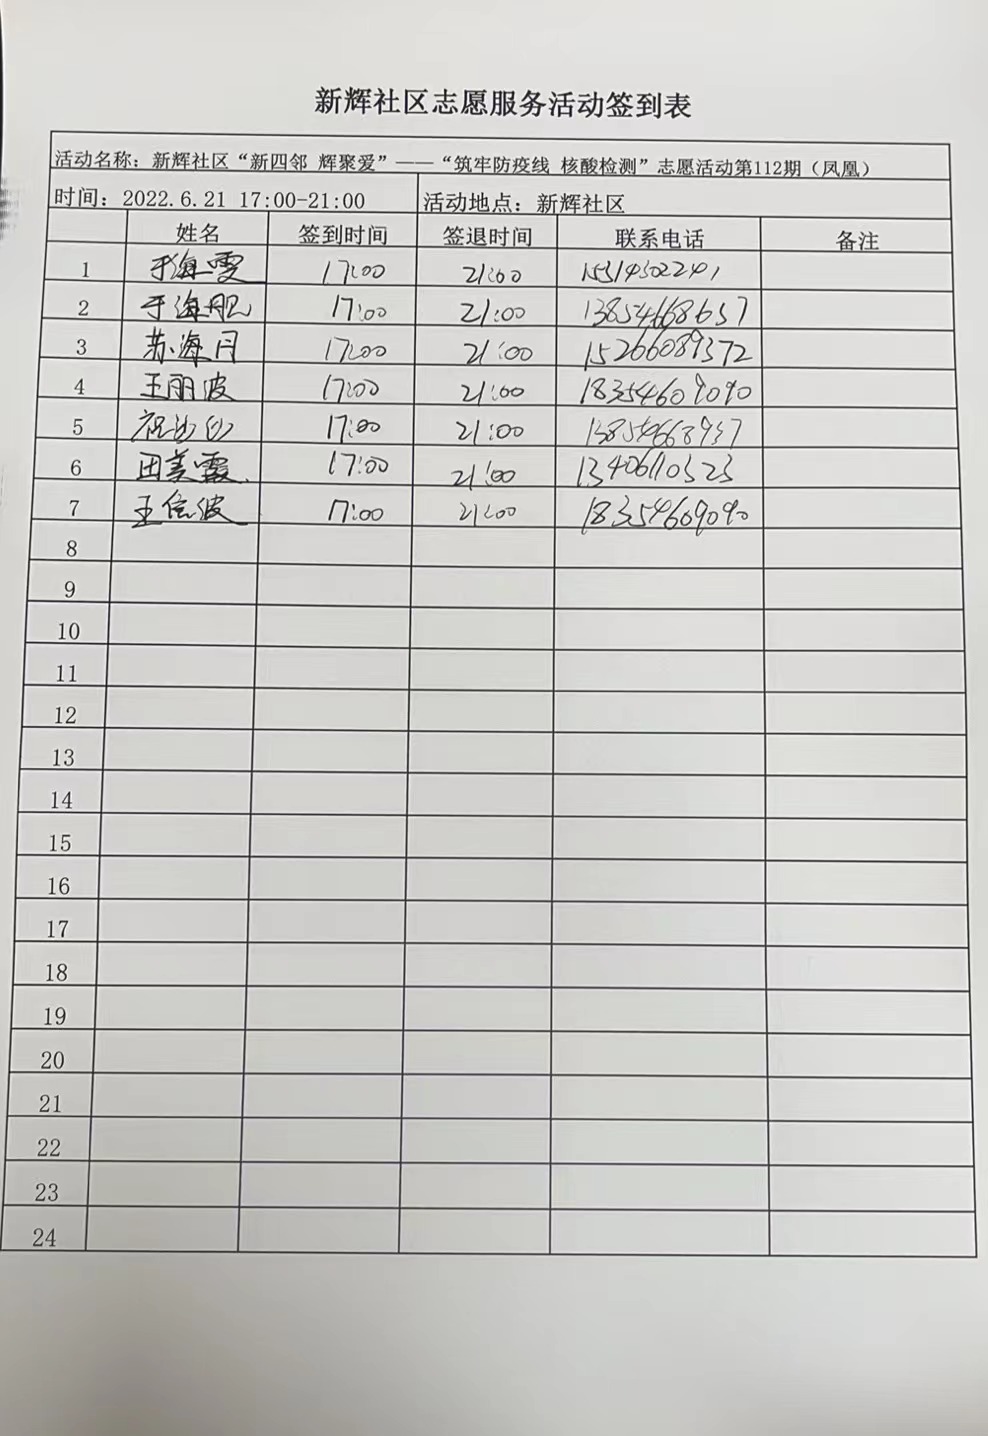 新辉社区志愿服务活动签到表
活动名称：新辉社区“新四邻 辉聚爱”——“筑牢防疫线 核酸检测”志愿活动第112期（凤凰）
时间：2022.6.21 17:00-21:00 活动地点：新辉社区
姓名 签到时间 签退时间 联系电话 备注
1 于海雯 17:00 21:00 15314302241
2 于海胆 17:00 21:00 13854668657
3 苏海月 17:00 21:00 15266089372
4 王丽波 17:00 21:00 18354609090
5 17:00 21:00 13854668937
6 田美霞 17:00 21:00 13406110323
7 王信波 17:00 21:00 18354609090
8
9
10
11
12
13
14
15
16
17
18
19
20
21
22
23
24